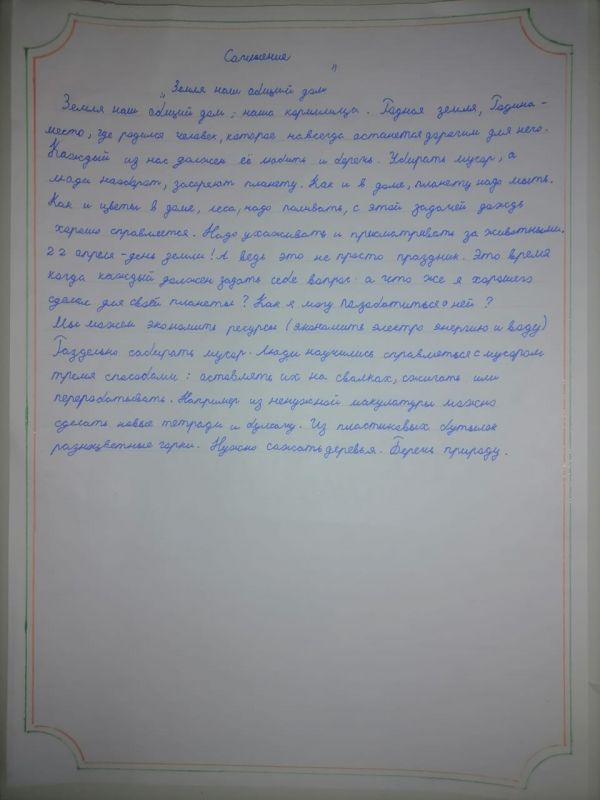 Сочинение
„Земля наш общий дом"
Земля наш общий дом; наша кормилица. Родная земля, Родина-
место, где родился человек, которое навсегда останется дорогим для него.
Каждый из нас должен её любить и беречь. Убирать мусор, а
люди наоборот, засоряют планету. Как и в доме, планету надо мыть.
Как и цветы в доме, леса, надо поливать, с этой задачей дождь
хорошо справляется. Надо ухаживать и присматривать за животными.
22 апреля-день земли! А ведь это не просто праздник. Это время
когда каждый должен задать себе вопрос: а что же я хорошего
сделал для своей планеты? Как я могу позаботиться о ней?
Мы можем экономить ресурсы (экономить электро энергию и воду)
Раздельно собирать мусор. Люди научились справляться с мусором
тремя способами: оставлять их на свалках, сжигать или
перерабатывать. Например из ненужной макулатуры можно
сделать новые тетради и бумагу. Из пластиковых бутылок
разноцветные горки. Нужно сажать деревья. Беречь природу.